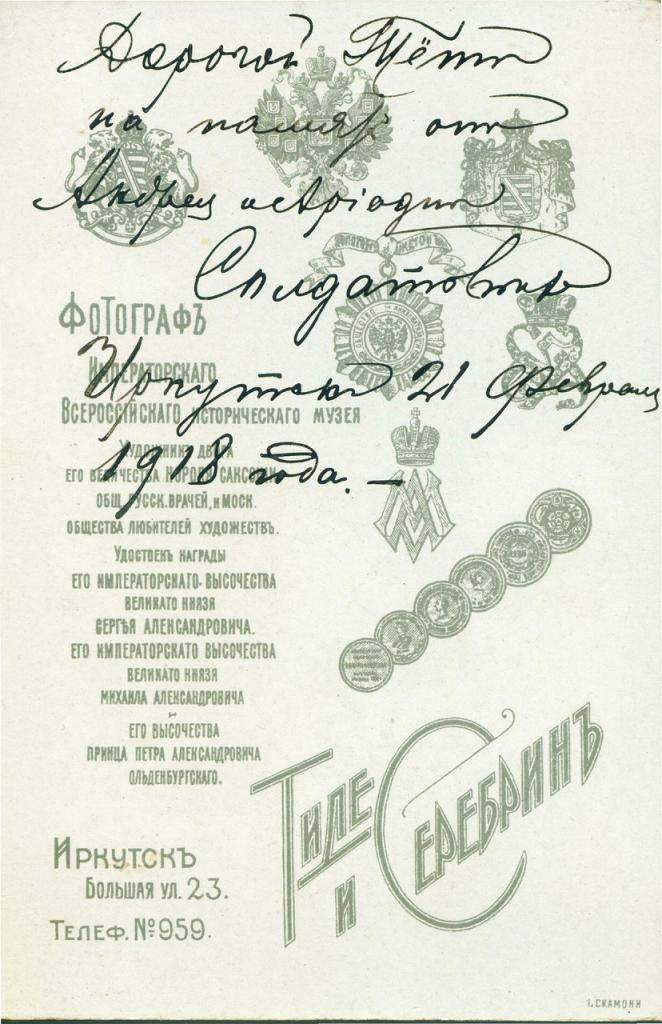 Дорогой Тётѣ
на память отъ
Андрея
Солдатовыхъ
Иркутскъ 21 Февраля
1918 года. —
ЗОЛОТОЙ ЖЕТОН
ФОТОГРАФЪ
ИМПЕРАТОРСКАГО
ВСЕРОССІЙСКАГО ИСТОРИЧЕСКАГО МУЗЕЯ
ХУДОЖНИКЪ ДВОРА
ЕГО ВЕЛИЧЕСТВА КОРОЛЯ САКСОНІИ
ОБЩ. РУССК. ВРАЧЕЙ, И МОСК.
ОБЩЕСТВА ЛЮБИТЕЛЕЙ ХУДОЖЕСТВЪ.
УДОСТОЕНЪ НАГРАДЫ
ЕГО ИМПЕРАТОРСКАГО-ВЫСОЧЕСТВА
ВЕЛИКАТО КНЯЗЯ
СЕРГѢЯ АЛЕКСАНДРОВИЧА.
ЕГО ИМПЕРАТОРСКАТО ВЫСОЧЕСТВА
ВЕЛИКАТО КНЯЗЯ
МИХАИЛА АЛЕКСАНДРОВИЧА
И
ЕГО ВЫСОЧЕСТВА
ПРИНЦА ПЕТРА АЛЕКСАНДРОВИЧА
ОЛЬДЕНБУРГСКАГО.
ТИДЕ
И
СЕРЕБРИНЪ
ИРКУТСКЪ
БОЛЬШАЯ УЛ. 23.
ТЕЛЕФ. №959.
І. СКАМОНИ